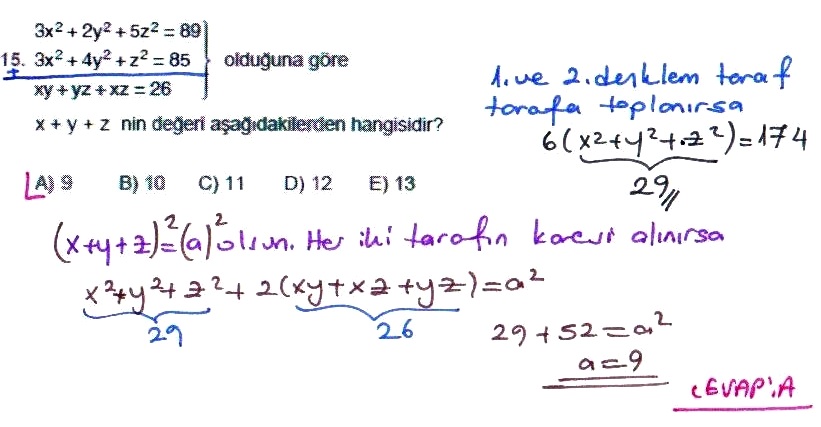 3x² + 2y² + 5z² = 89
15. 3x² + 4y² + z² = 85 olduğuna göre
+
xy + yz + xz = 26
x + y + z nin değeri aşağıdakilerden hangisidir?
A) 9 B) 10 C) 11 D) 12 E) 13
1. ve 2. denklem taraf
tarafa toplanırsa
6(x²+y²+z²)=174
29
(x+y+z)²=(a)² olsun. Her iki tarafın karesi alınırsa
x²+y²+z²+2(xy+xz+yz)=a²
29 26
29+52=a²
a=9
CEVAP:A